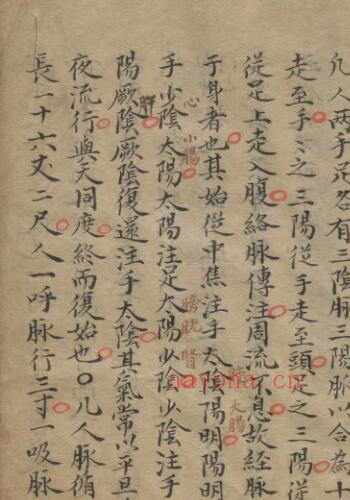 凡人兩手足各有三陰脉三陽脉以合為十
走至手〻之三陽從手走至頭足之三陽從
從足上走入腹絡脉傳注周流不息故經脉
于身者也其始從中焦注手太陰陽明陽明
手少陰太陽太陽注足太陽少陰少陰注手
陽厥陰厥陰復還注手太陰其氣常以平旦
夜流行與天同度終而復始也〇凡人脉循
長一十六丈二尺人一呼脉行三寸一吸脉
心
小腸
膀胱
腎
大腸
nayona.cn